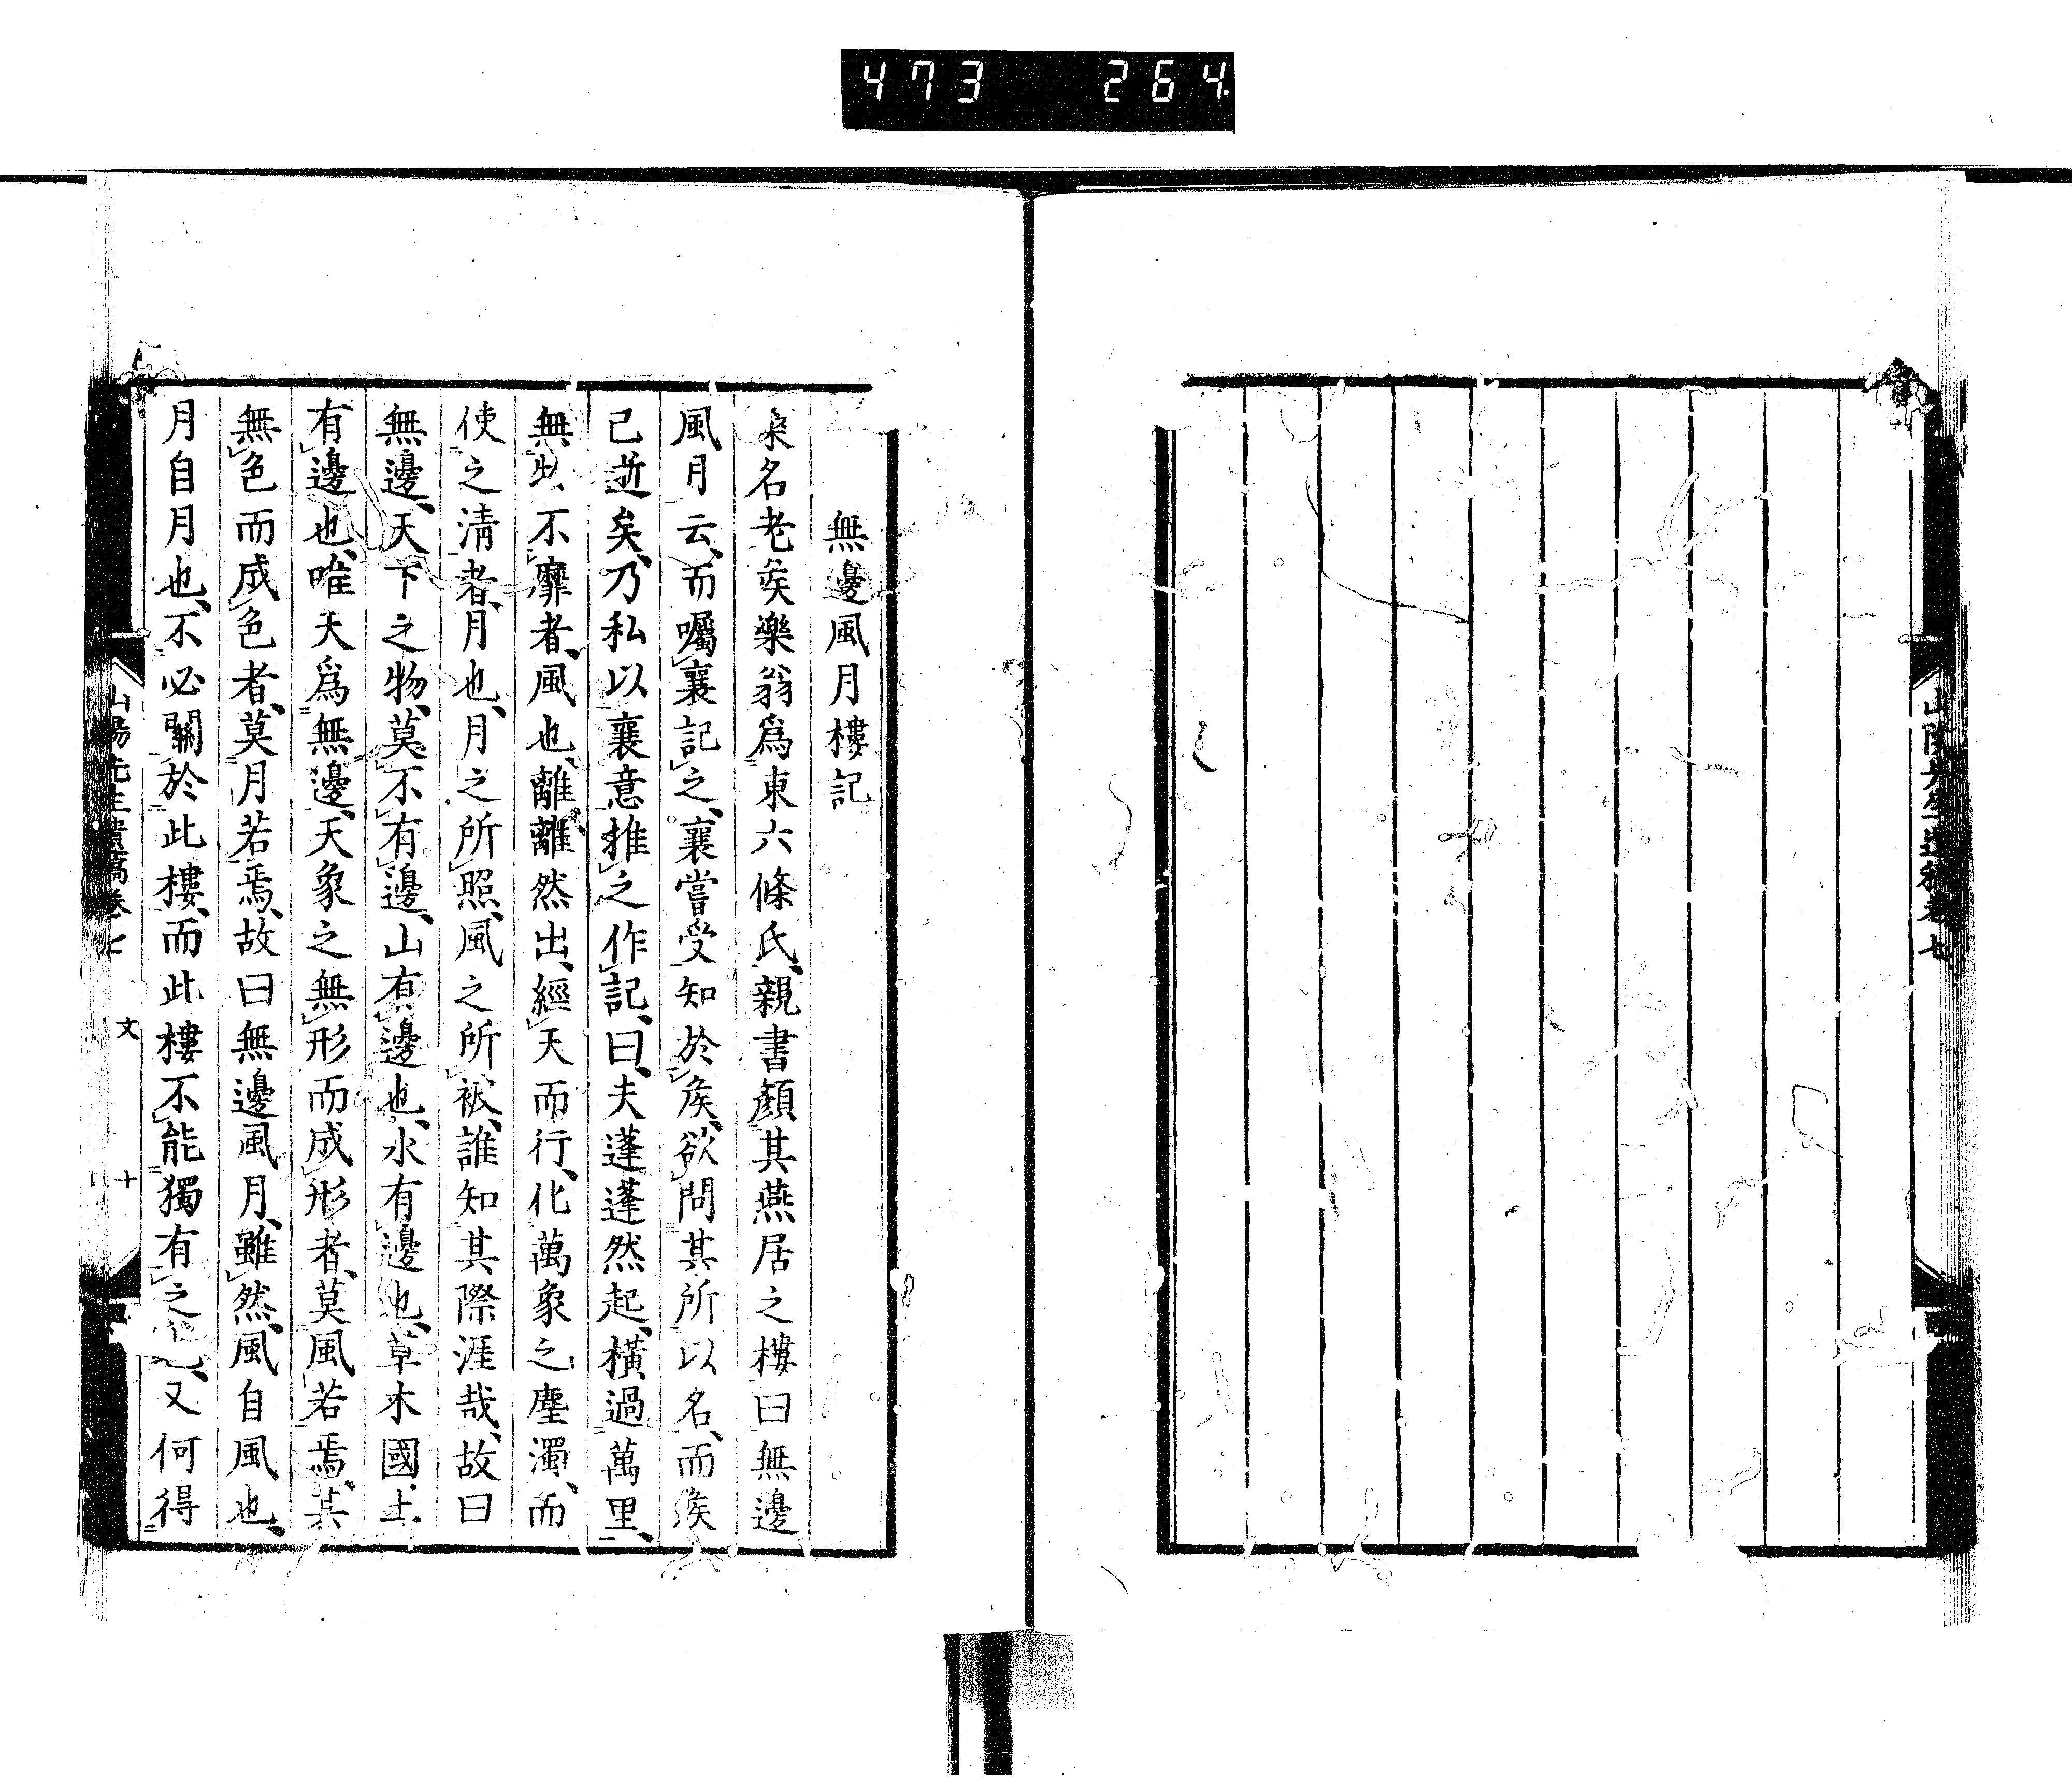 473 264
山陽先生遺稿卷七
無邊風月樓記
桑名老矦樂翁爲東六條氏、親書顏其燕居之樓曰無邊
風月云、而囑襄記之、襄嘗受知於矦、欲問其所以名、而矦
已逝矣、乃私以襄意推之作記、曰、夫蓬蓬然起、橫過萬里、
無物不靡者、風也、離離然出、經天而行、化萬象之塵濁、而
使之淸者、月也、月之所照、風之所被、誰知其際涯哉、故曰
無邊、天下之物、莫不有邊、山有邊也、水有邊也、草木國土
有邊也、唯天爲無邊、天象之無形而成形者、莫風若焉、其
無色而成色者、莫月若焉、故曰無邊風月、雖然、風自風也、
月自月也、不必關於此樓、而此樓不能獨有之也、又何得
山陽先生遺稿卷七 文 十